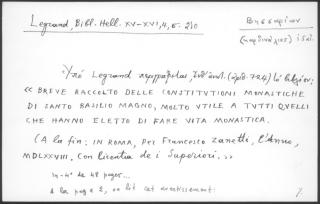 Legrand, Bibl. Hell. XV-XVI, 4, σ. 210
Βησσαρίων
(καρδινάλιος) i Sâl.
Ὑπὸ Legrand περιγράφεται, (ἀριθ. 724) τὸ βιβλίον:
« BREVE RACCOLTO DELLE CONSTITUTIONI MONASTICHE
DI SANTO BASILIO MAGNO, MOLTO VTILE A TVTTI QVELLI
CHE HANNO ELETTO DI FARE VITA MONASTICA.
(A la fin: IN ROMA, Per Francesco Zanetti, l'Anno,
MDLXXVIII, Con licentia de i Superiori.»
in-4° de 48 pages...
A la page 2, on lit cet avertissement: